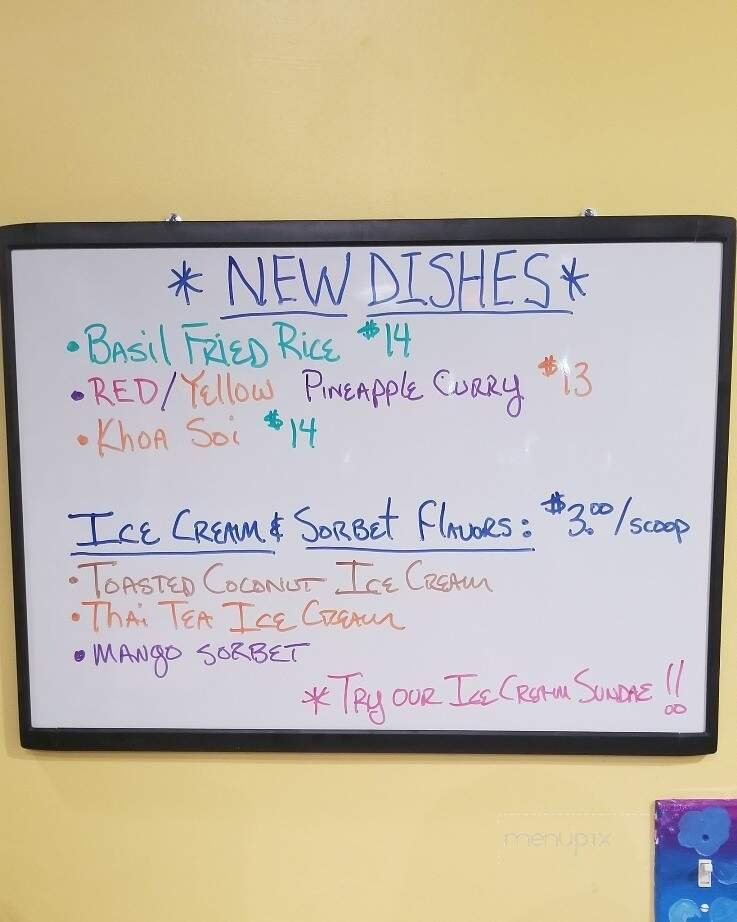 * NEW DISHES *
• Basil Fried Rice $14
• RED/Yellow Pineapple Curry $13
• Khoa Soi $14
Ice Cream & Sorbet Flavors: $3.00/scoop
• Toasted Coconut Ice Cream
• Thai Tea Ice Cream
• Mango Sorbet
* Try our Ice Cream Sundae!!
menupix